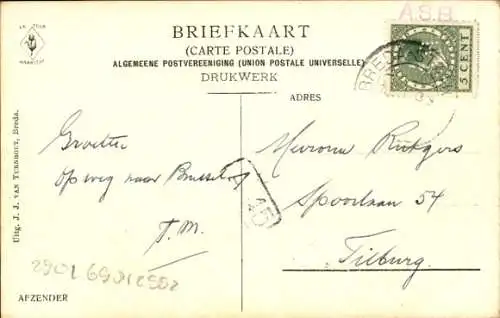 A.S.B.
BRIEFKAART
(CARTE POSTALE)
ALGEMEENE POSTVEREENIGING (UNION POSTALE UNIVERSELLE)
DRUKWERK
5 CENT
BREDA
ADRES
Groeten
op weg naar Brussel
T.M.
45
Mevrouw Rutgers
Spoorlaan 54
Tilburg.
Uitg. J. J. VAN TURNHOUT, Breda.
2901 6901 2502
AFZENDER